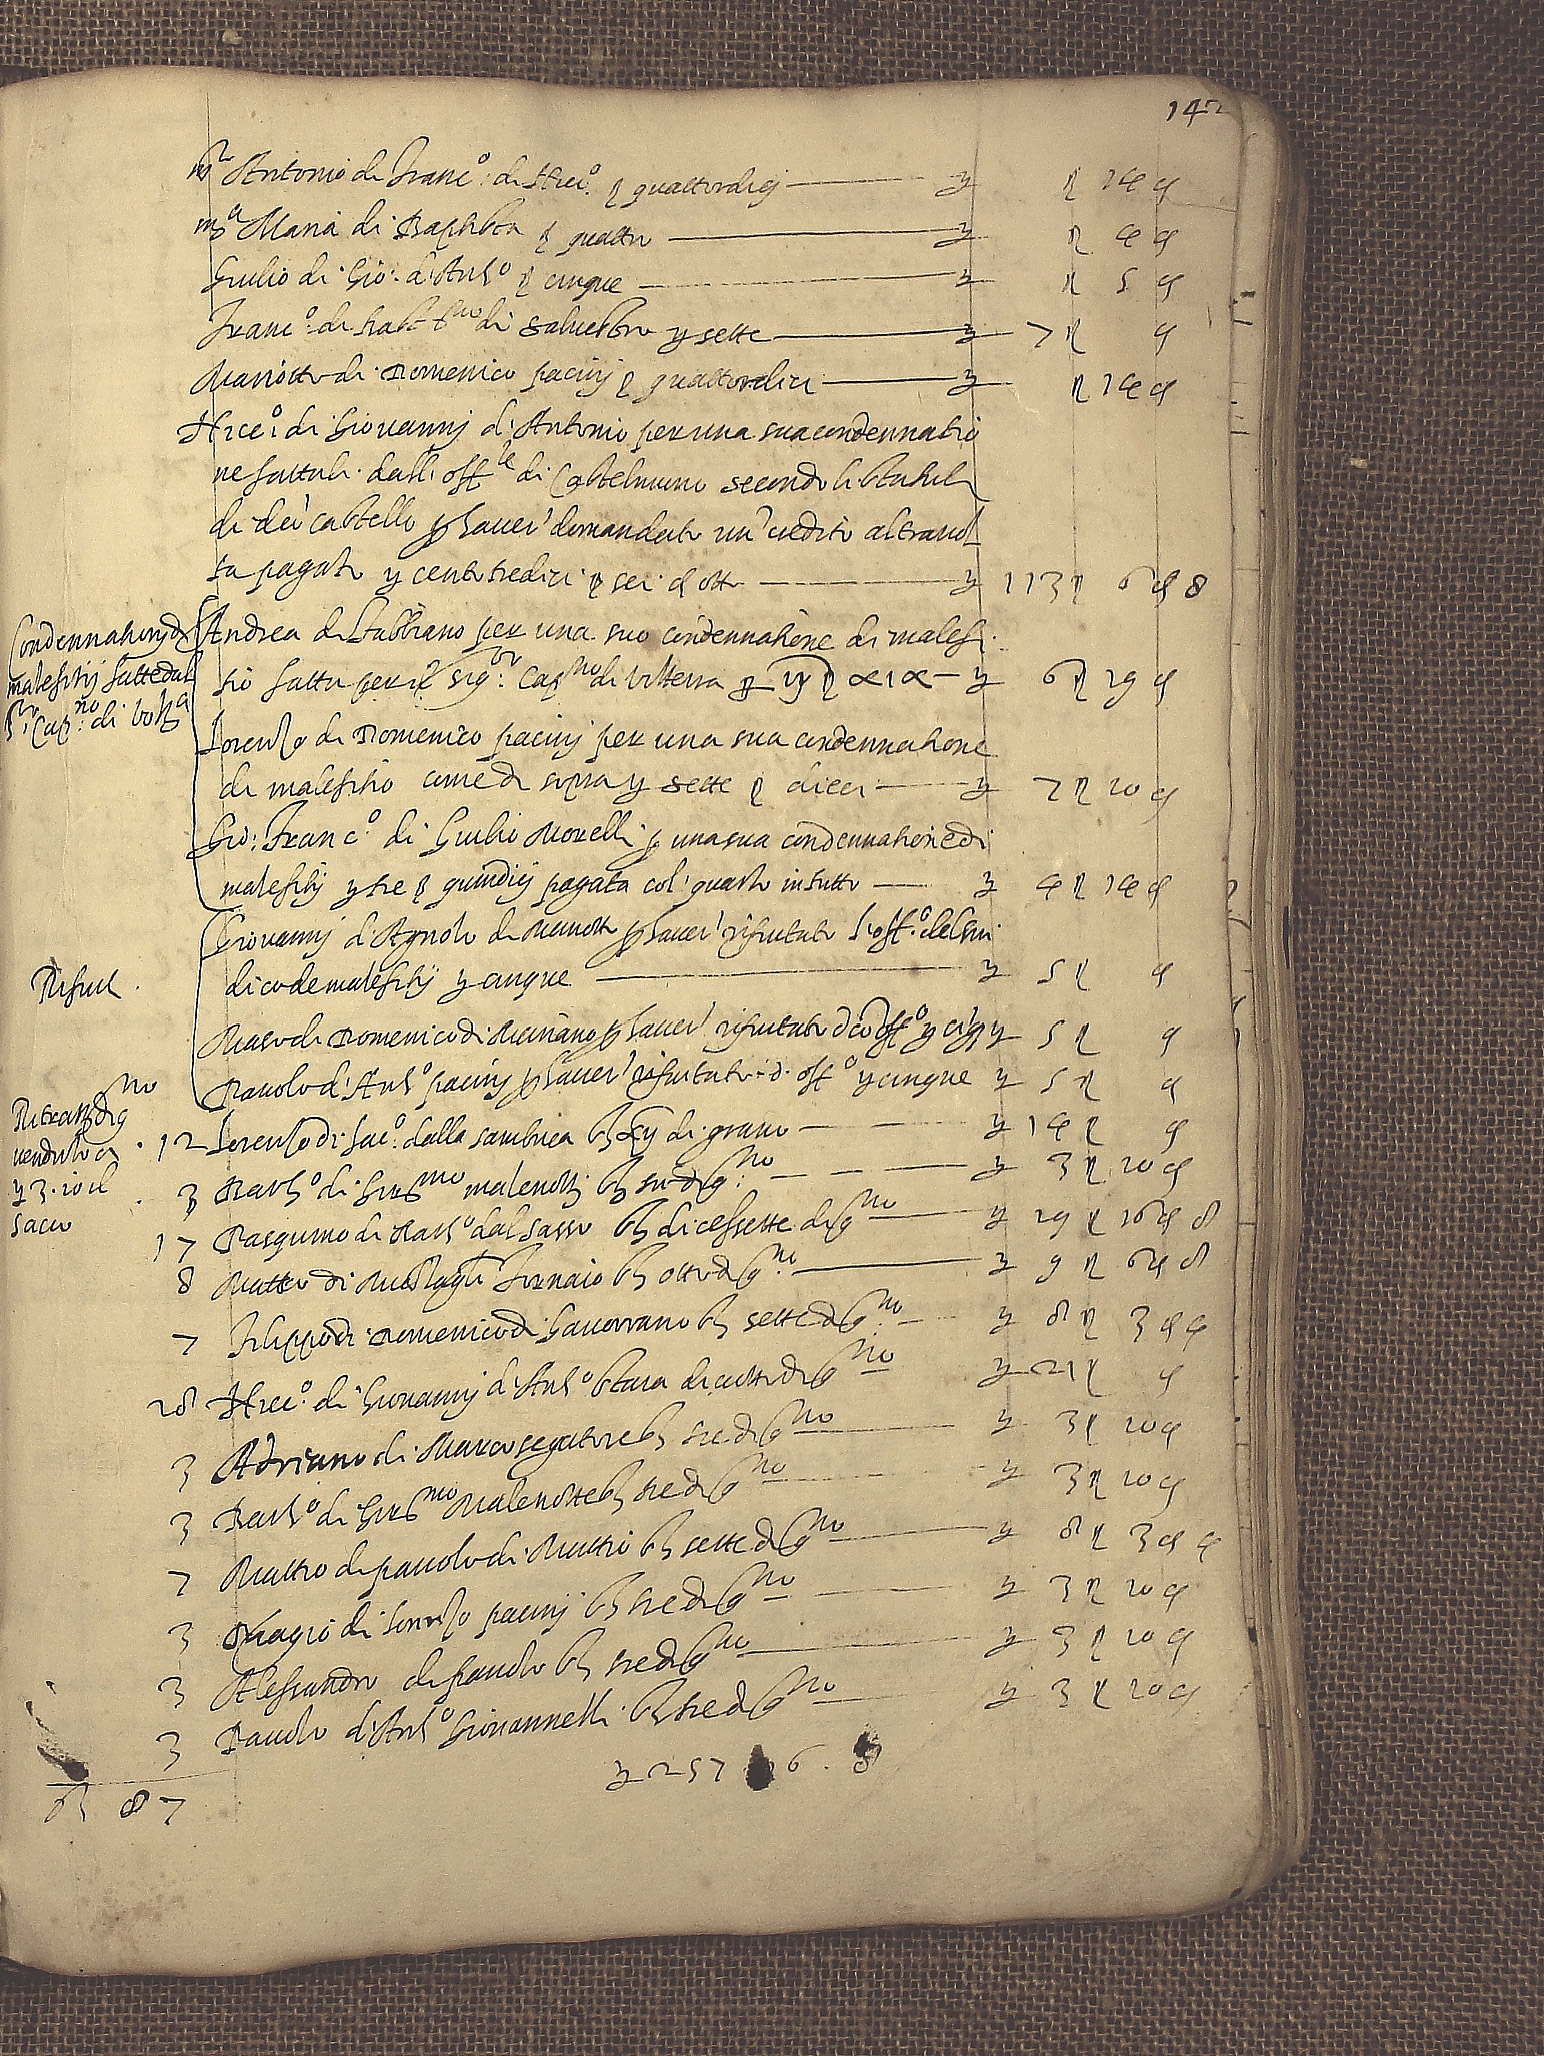 142
Antonio di Franc.o di Hier.o ꝭ quattordici — y ꝭ 14 ꝯ
m.a Maria di Bap.ta ꝭ quattro — y ꝭ 4 ꝯ
Giulio di Gio: d'Ant.o ꝭ cinque — y ꝭ 5 ꝯ
Franc.o di di Salvestro y sette — y 7 ꝭ ꝯ
Mariotto di Domenico pacinj ꝭ quattordici — y ꝭ 14 ꝯ
di Giovannj d'Antonio per una sua condennatio
ne fattali dall' off.le di secondo li statuti
di castello haver' domandato un' credito altravol
ta pagato y centotredici ꝭ sei ꝯ otto — y 113 ꝭ 6 ꝯ 8
Condennationj di
malefitij fatte dal
S.r Cap.no di Volt.a
Andrea da Fabbiano per una suo condennatione di malefi
tio fatta per il Sig.or Cap.no di Volterra — y 6 ꝭ 19 ꝯ
Lorenzo di Domenico pacinj per una sua condennatione
di malefitio come di sopra y sette ꝭ dieci — y 7 ꝭ 10 ꝯ
Gio: Franc.o di Giulio Morelli p una sua condennatione di
malefitij y tre ꝭ quindicj pagata col' quarto in tutto — y 4 ꝭ 14 ꝯ
Rifiut.
Giovannj d'Agnolo di Mariotto p haver' rifiutato l'off.o del sin
dico de malefitij y cinque — y 5 ꝭ ꝯ
Maso di Domenico di Mariano p haver' rifiutato off.o y y 5 ꝭ ꝯ
Pavolo d'Ant.o pacinj p haver' rifiutato d. off.o y cinque y 5 ꝭ ꝯ
Ritratto di g.no
venduto a
y 3. 10 il
sacco
12 Lorenzo di Iac.o dalla sambuca di grano — y 14 ꝭ ꝯ
3 Bart.o di malenotti tre di g.no — y 3 ꝭ 10 ꝯ
17 Pasquino di Bart.o dal sasso dicessette di g.no y 19 ꝭ 16 ꝯ 8
8 Matteo di fornaio otto di g.no — y 9 ꝭ 6 ꝯ 8
7 Filippo di Domenico di Gavorrano sette di g.no — y 8 ꝭ 3 ꝯ 4
18 di Giovannj d'Ant.o staia diciotto di g.no y 21 ꝭ ꝯ
3 Adriano di Marco segatore tre di g.no — y 3 ꝭ 10 ꝯ
3 Bart.o di Malenotti tre di g.no — y 3 ꝭ 10 ꝯ
7 Mattio di pavolo di Mattio sette di g.no — y 8 ꝭ 3 ꝯ 4
3 Biagio di Lorenzo pacinj tre di g.no — y 3 ꝭ 10 ꝯ
3 Alessandro di pavolo tre di g.no — y 3 ꝭ 10 ꝯ
3 Pavolo d'Ant.o Giovannelli tre di g.no — y 3 ꝭ 10 ꝯ
y 257 6. 8
87